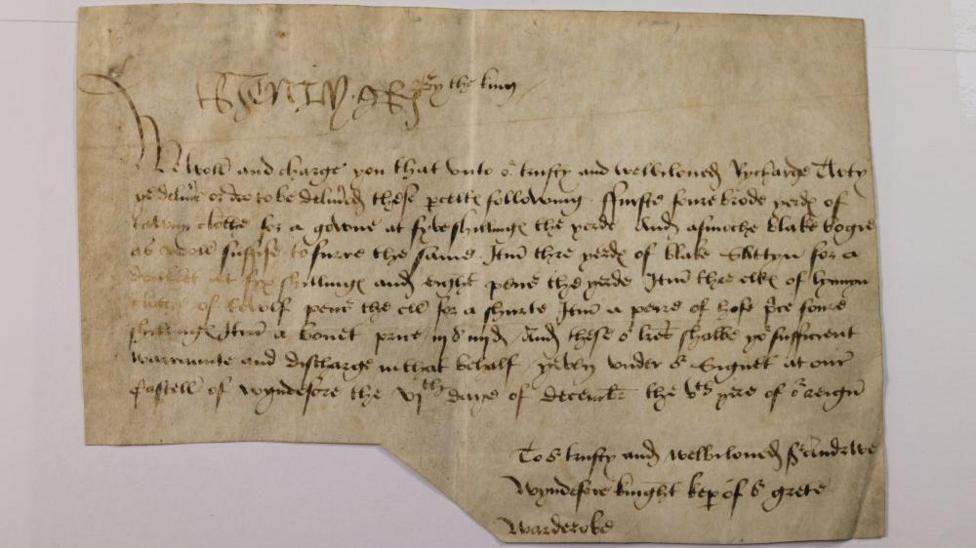 HENRY R
By the king
We woll and charge you that unto oʳ trusty and welbiloued Rycharde
ye delyuer or do to be delyuered these pcells following ffurste foure brode yerds of
tawny clothe for a gowne at fyve shillings the yerde And asmoche blake bogie
as woll suffise to furre the same Itm thre yerds of blake Sattyn for a
doublet at six shillings and eight pence the yerde Itm thre elles of lynnyn
clothe of twelf pence the ell for a shurte Itm a peire of hose pʳce foure
shillings Itm a bonet price iijs iiijd And these oʳ lres shalbe yoʳ sufficient
warraunte and discharge in that behalf yeven under oʳ Signet at our
Castell of Wyndesore the vjth daye of Decembre the Vth yere of oʳ reign
To oʳ trusty and welbiloued Sʳ Andrewe
Wyndesore knight kepʳ of oʳ grete
Warderobe